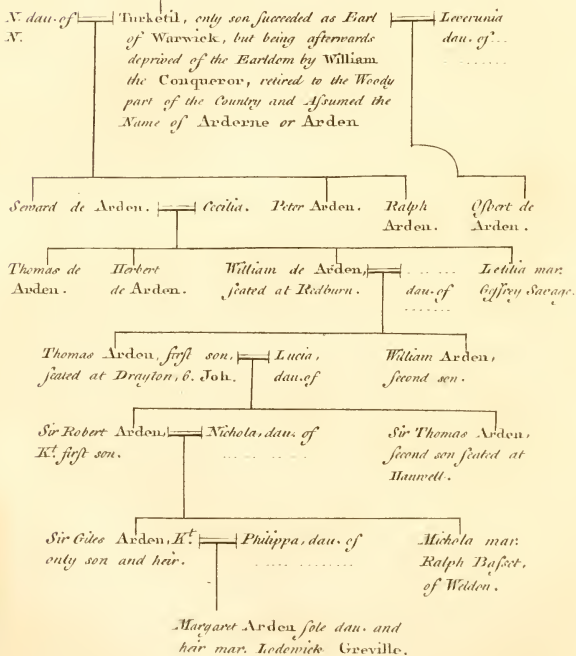 N. dau. of
N.
Turketil, only son ſucceeded as Earl
of Warwick, but being afterwards
deprived of the Earldom by William
the Conqueror, retired to the Woody
part of the Country and Aſsumed the
Name of Arderne or Arden
Leverunia
dau. of ...
Seward de Arden.
Cecilia.
Peter Arden.
Ralph
Arden.
Osbert de
Arden.
Thomas de
Arden.
Herbert
de Arden.
William de Arden,
ſeated at Rodburn.
dau. of
Letilia mar.
Geffrey Savage.
Thomas Arden, firſt son,
ſeated at Drayton, 6. Joh.
Lucia,
dau. of
William Arden,
second son.
Sir Robert Arden,
Kt. firſt son.
Nichola, dau. of
Sir Thomas Arden,
second son ſeated at
Hanwell.
Sir Giles Arden, Kt.
only son and heir.
Philippa, dau. of
Nichola mar.
Ralph Baſset,
of Weldon.
Margaret Arden ſole dau. and
heir mar. Lodowick Greville.